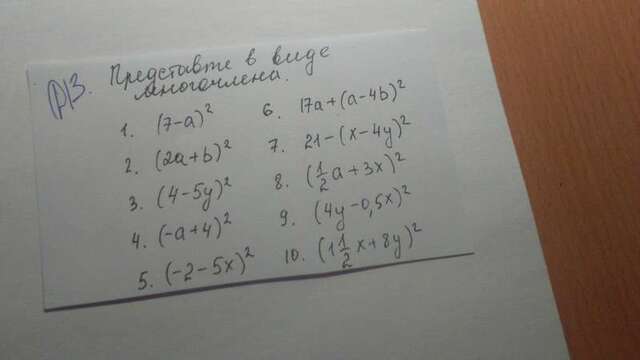 Д/З. Представьте в виде
многочлена.
1. (7-a)²
2. (2a+b)²
3. (4-5y)²
4. (-a+4)²
5. (-2-5x)²
6. 17a+(a-4b)²
7. 21-(x-4y)²
8. (1/2 a+3x)²
9. (4y-0,5x)²
10. (1 1/2 x+8y)²